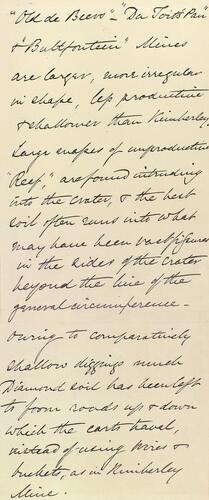 "Old de Beers" - "Du Toits Pan"
& "Bultfontein" Mines
are larger, more irregular
in shape, less productive
& shallower than Kimberley.
Large masses of unproductive
"Reef," are found intruding
into the Crater, & the best
soil often runs into what
may have been vast fissures
in the sides of the crater
beyond the line of the
general circumference -
Owing to comparatively
shallow diggings much
Diamond soil has been left
to form roads up & down
which the carts travel,
instead of using wires &
buckets, as in Kimberley
Mine.